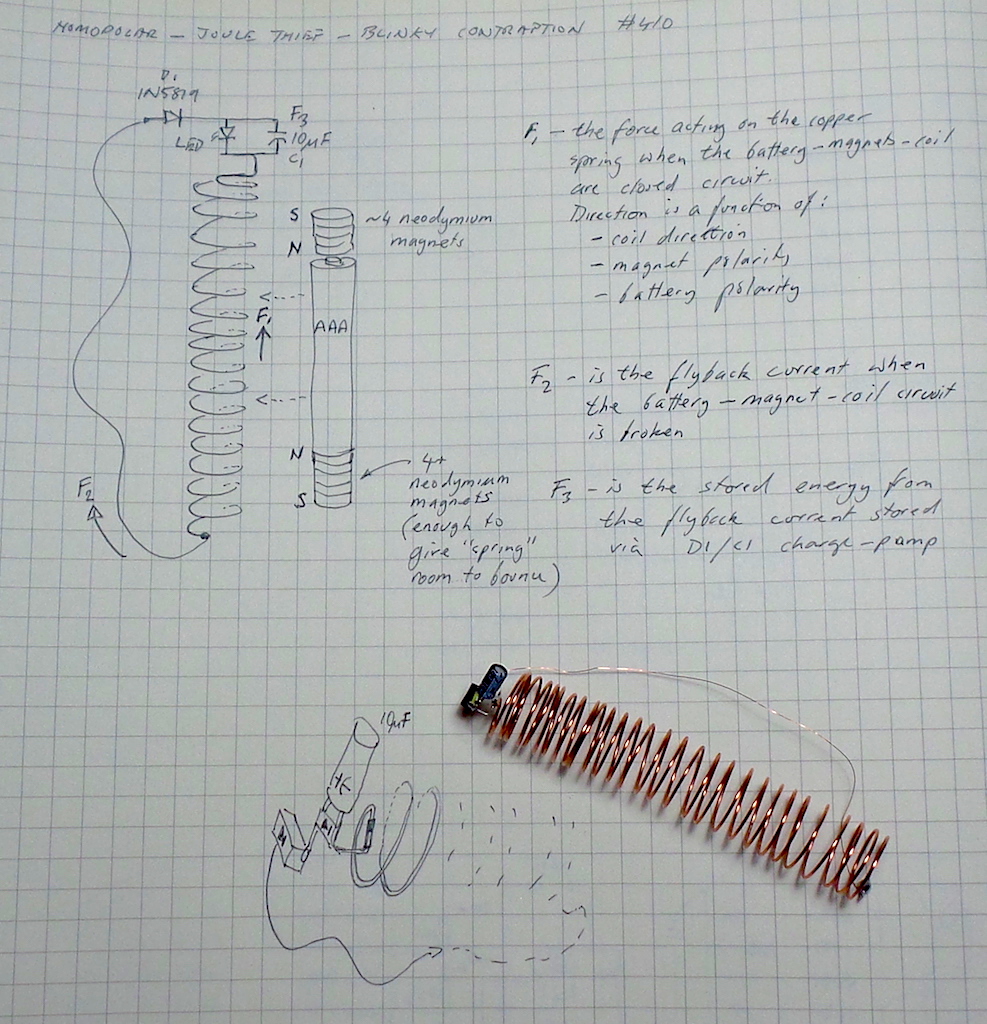 HOMOPOLAR – JOULE THIEF – BLINKY CONTRAPTION #410
D1
1N5819
LED
F3
10µF
C1
S
N
~4 neodymium
magnets
AAA
F1
N
S
4+
neodymium
magnets
(enough to
give "spring"
room to bounce)
F2
F1 – the force acting on the copper
spring when the battery–magnets–coil
are closed circuit.
Direction is a function of:
– coil direction
– magnet polarity
– battery polarity
F2 – is the flyback current when
the battery–magnet–coil circuit
is broken
F3 – is the stored energy from
the flyback current stored
via D1/C1 charge–pump
10µF